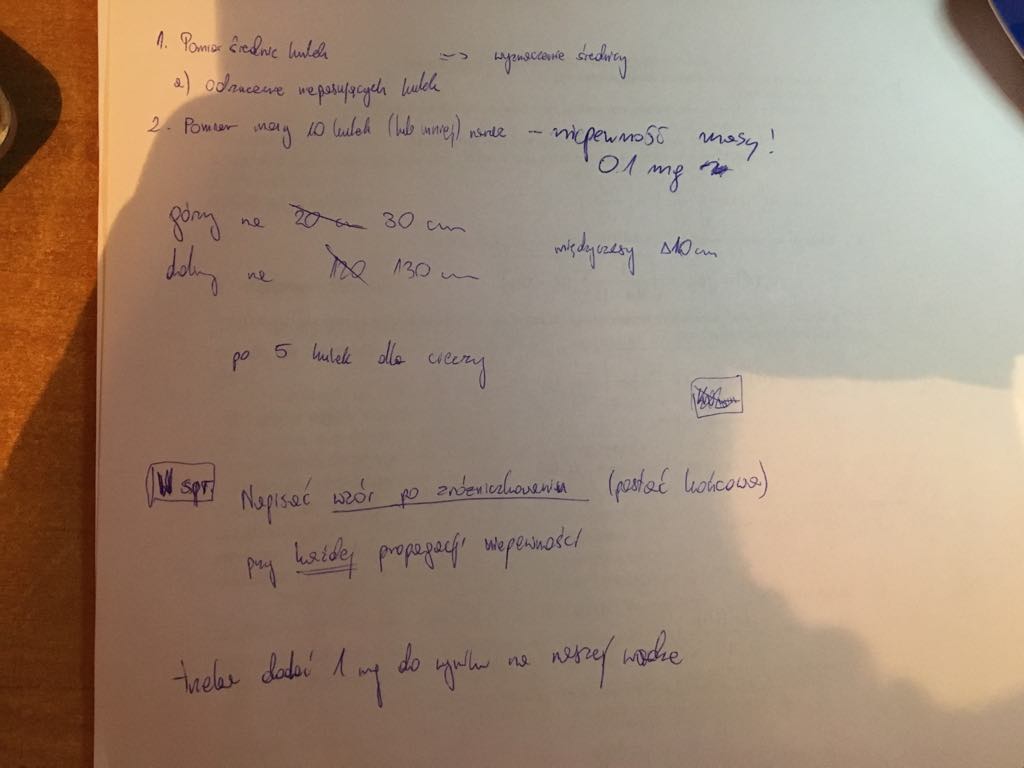 1. Pomiar średnic kulek => wyznaczenie średnicy
a) Odrzucenie niepasujących kulek
2. Pomiar masy 10 kulek (lub mniej) naraz – niepewność masy!
0.1 mg
górny na 20 cm 30 cm
międzyczasy Δ10 cm
dolny na 120 130 cm
po 5 kulek dla cieczy
W spr.
Napisać wzór po zróżniczkowaniu (postać końcowa)
przy każdej propagacji niepewności
trzeba dodać 1 mg do wyniku na naszej wadze